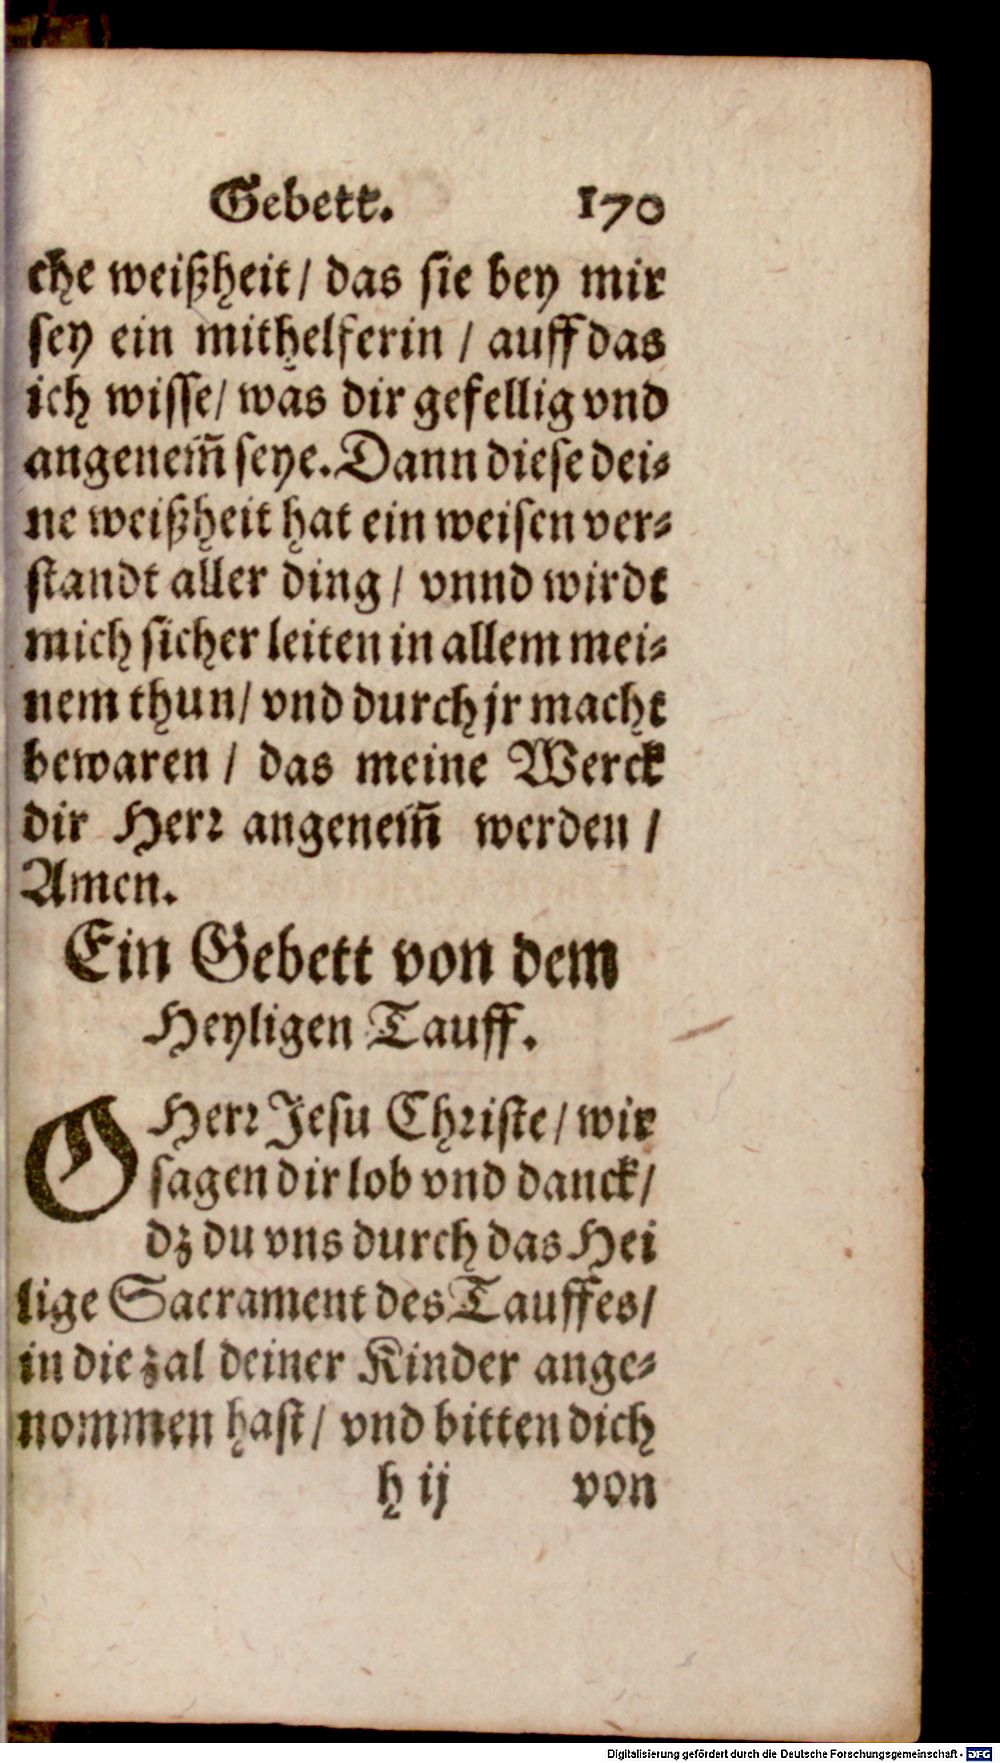 Gebett. 170
che weißheit / das sie bey mir
sey ein mithelferin / auff das
ich wisse / was dir gefellig vnd
angenem̃ seye. Dann diese dei⸗
ne weißheit hat ein weisen ver⸗
standt aller ding / vnnd wirdt
mich sicher leiten in allem mei⸗
nem thun / vnd durch jr macht
bewaren / das meine Werck
dir Herr angenem̃ werden /
Amen.
Ein Gebett von dem
Heyligen Tauff.
O Herr Jesu Christe / wir
sagen dir lob vnd danck /
dz du vns durch das Hei
lige Sacrament des Tauffes /
in die zal deiner Kinder ange⸗
nommen hast / vnd bitten dich
h ij von
Digitalisierung gefördert durch die Deutsche Forschungsgemeinschaft - DFG